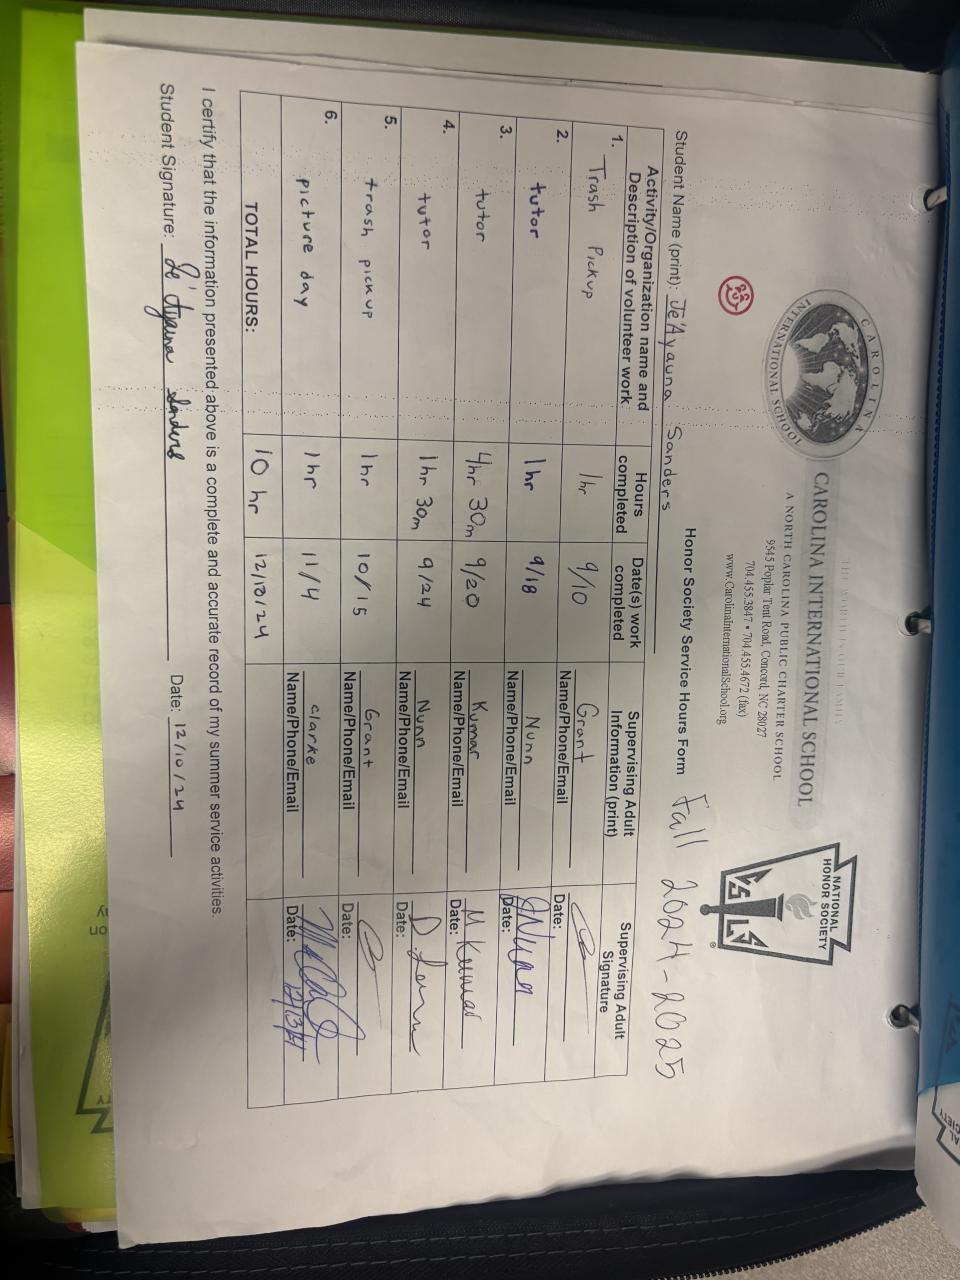 THE WORLD IS OUR FAMILY
CAROLINA INTERNATIONAL SCHOOL
CAROLINA INTERNATIONAL SCHOOL
A NORTH CAROLINA PUBLIC CHARTER SCHOOL
9545 Poplar Tent Road, Concord, NC 28027
704.455.3847 • 704.455.4672 (fax)
www.CarolinaInternationalSchool.org
NATIONAL
HONOR SOCIETY
Honor Society Service Hours Form Fall 2024-2025
Student Name (print): Je'Ayauna Sanders
Activity/Organization name and Description of volunteer work Hours completed Date(s) work completed Supervising Adult Information (print) Supervising Adult Signature
1. Trash Pickup 1hr 9/10 Grant
Name/Phone/Email Date:
2. tutor 1hr 9/18 Nunn
Name/Phone/Email Date:
3. tutor 4hr 30m 9/20 Kumar M Kumar
Name/Phone/Email Date:
4. tutor 1hr 30m 9/24 Nunn
Name/Phone/Email Date:
5. trash pickup 1hr 10/15 Grant
Name/Phone/Email Date:
6. picture day 1hr 11/4 clarke
Name/Phone/Email Date:
TOTAL HOURS: 10 hr 12/10/24
I certify that the information presented above is a complete and accurate record of my summer service activities.
Student Signature: Je'Ayauna Sanders Date: 12/10/24